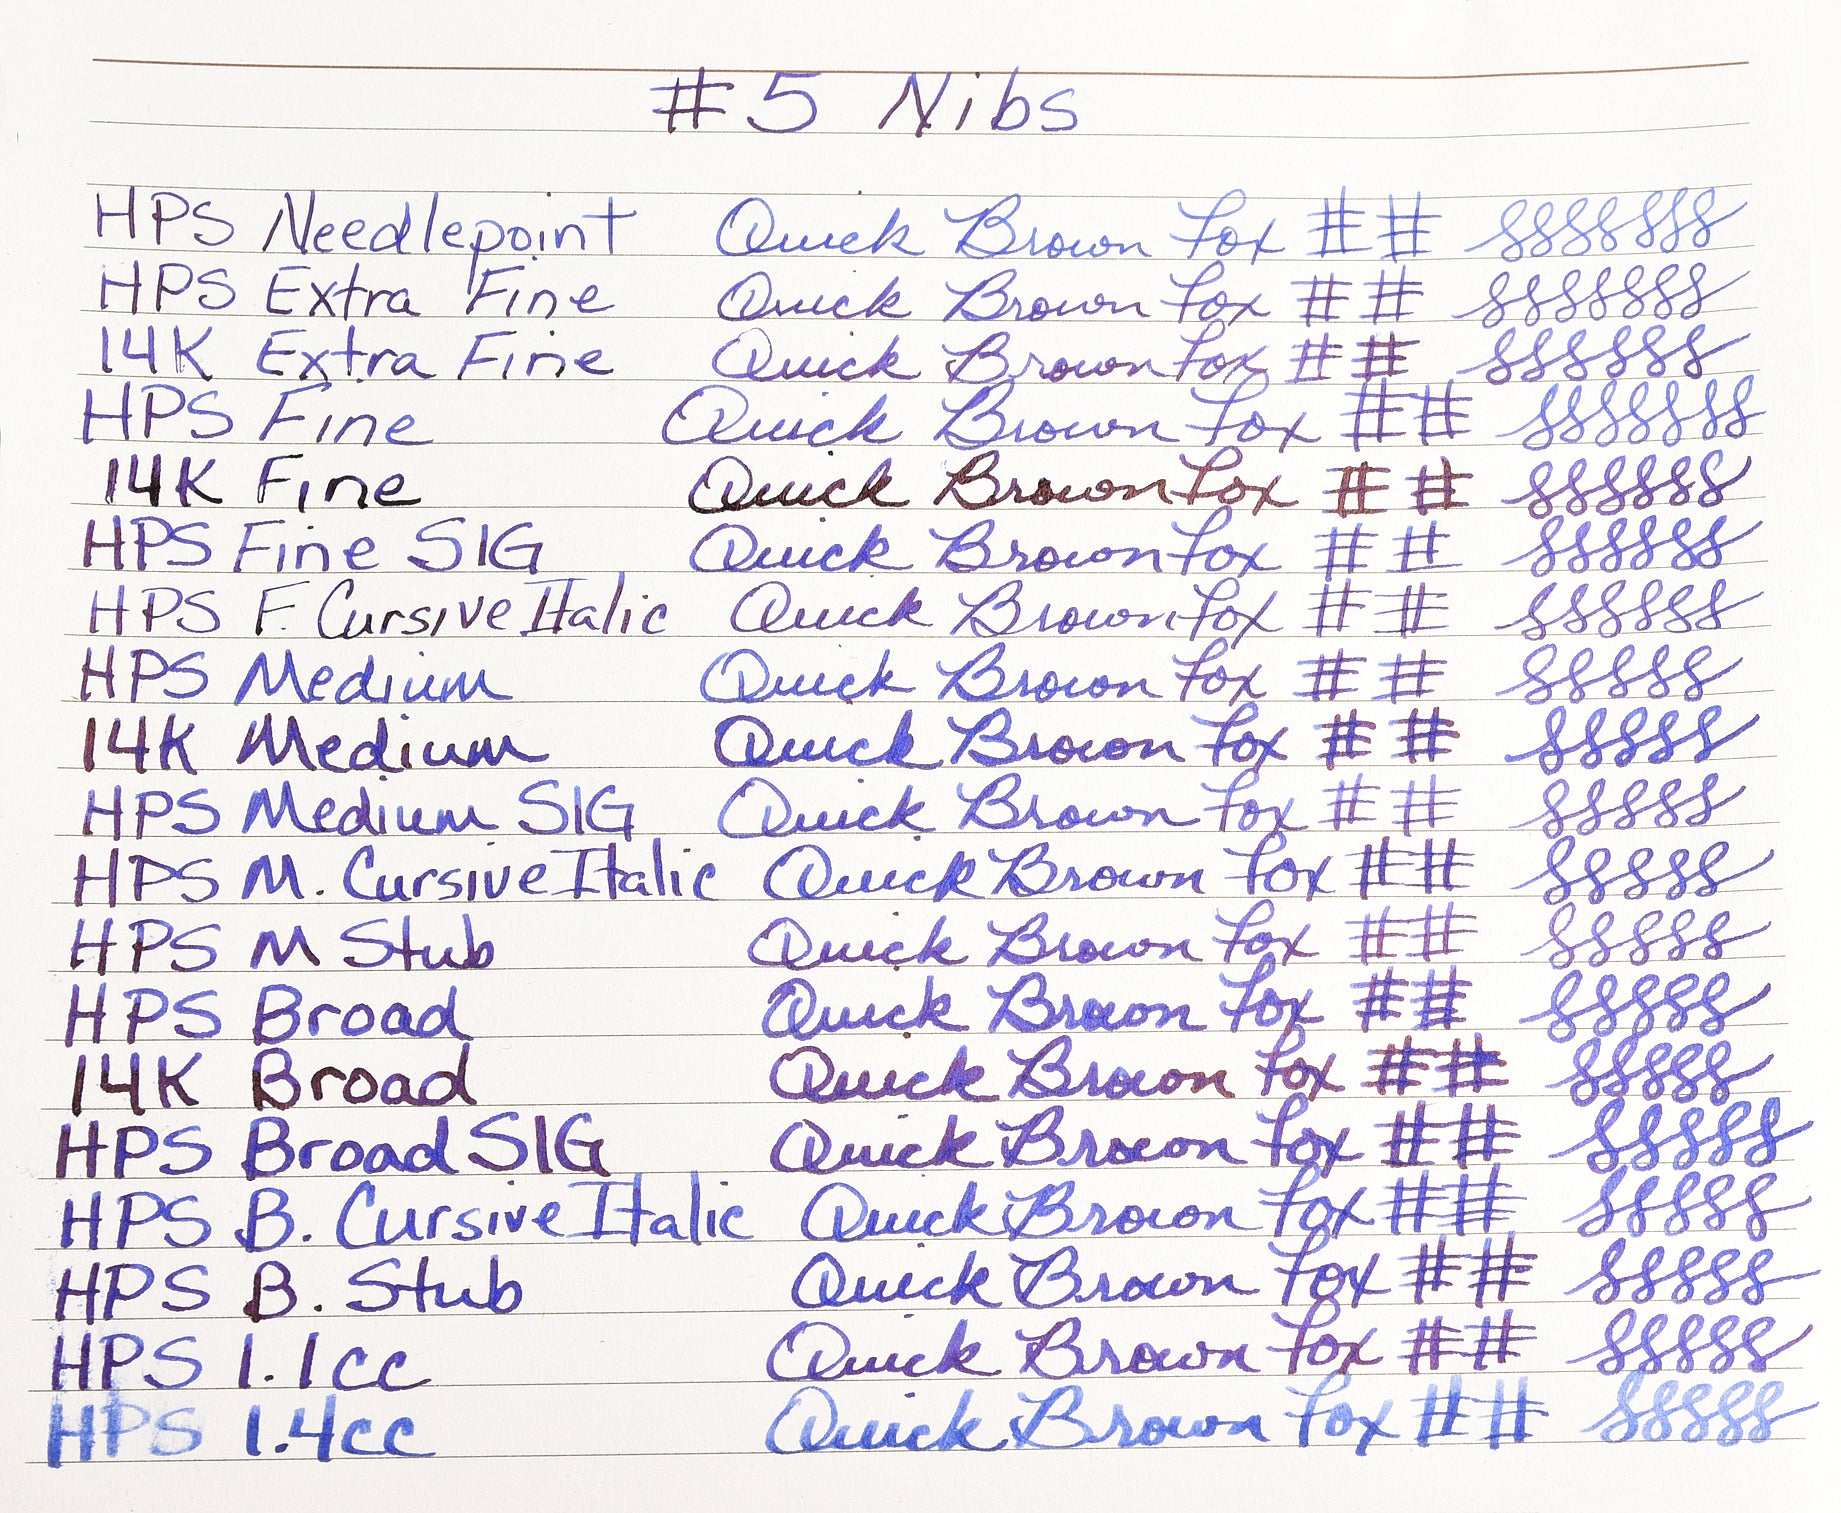 #5 Nibs
HPS Needlepoint Quick Brown Fox ## SSSSSSSS
HPS Extra Fine Quick Brown Fox ## SSSSSSSS
14K Extra Fine Quick Brown Fox ## SSSSSSS
HPS Fine Quick Brown Fox ## SSSSSSSS
14K Fine Quick Brown Fox ## SSSSSSS
HPS Fine SIG Quick Brown Fox ## SSSSSSS
HPS F. Cursive Italic Quick Brown Fox ## SSSSSSS
HPS Medium Quick Brown Fox ## SSSSSS
14K Medium Quick Brown Fox ## SSSSSS
HPS Medium SIG Quick Brown Fox ## SSSSSS
HPS M. Cursive Italic Quick Brown Fox ## SSSSSS
HPS M Stub Quick Brown Fox ## SSSSSS
HPS Broad Quick Brown Fox ## SSSSSS
14K Broad Quick Brown Fox ## SSSSSS
HPS Broad SIG Quick Brown Fox ## SSSSSS
HPS B. Cursive Italic Quick Brown Fox ## SSSSSS
HPS B. Stub Quick Brown Fox ## SSSSSS
HPS 1.1cc Quick Brown Fox ## SSSSSS
HPS 1.4cc Quick Brown Fox ## SSSSSS